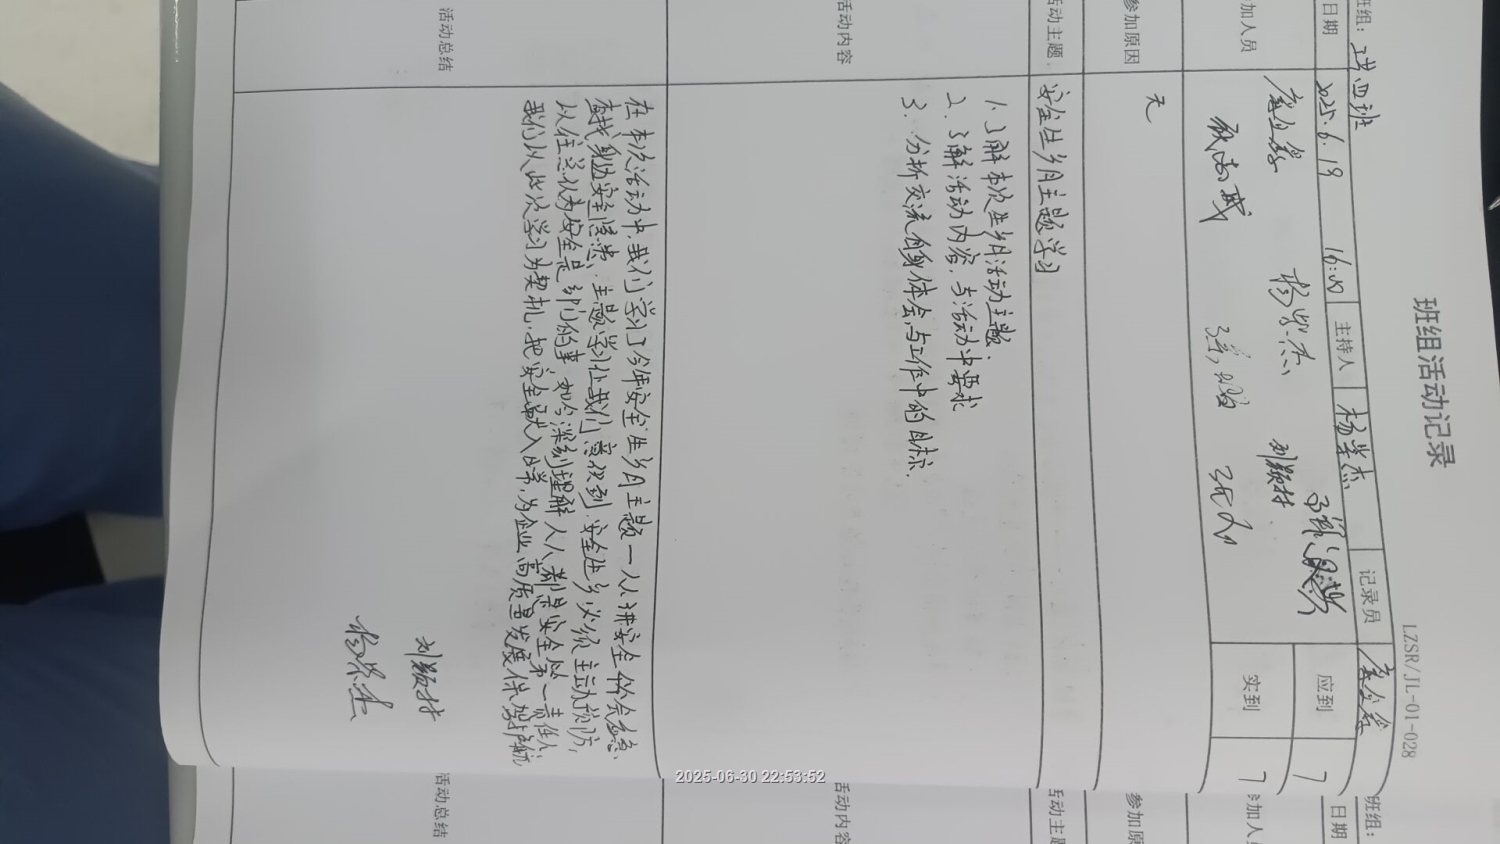 班组活动记录
LZSR/JL-01-028
班组：
四班
日期
2025.6.19 16:00
主持人
杨崇杰
记录员
参加人员
杨崇杰
刘颖材
应到
7
实到
7
参加原因
无
活动主题
安全生产月主题学习
活动内容
1.了解本次生产月活动主题.
2.了解活动内容.与活动中要求
3.分析交流自身体会与工作中的目标.
活动总结
在本次活动中,我们学习了今年安全生产月主题一人人讲安全 个个会应急、
查找身边安全隐患、主题学习让我们意识到.安全生产必须主动预防,
以往总认为安全是部门的事,如今深刻理解人人都是安全第一责任人.
我们以此次学习为契机.把安全融入日常,为企业高质量发展保驾护航
刘颖材
杨崇杰
2025-06-30 22:53:52
班组：
日期
参加人
参加原
活动主
活动内容
活动总结